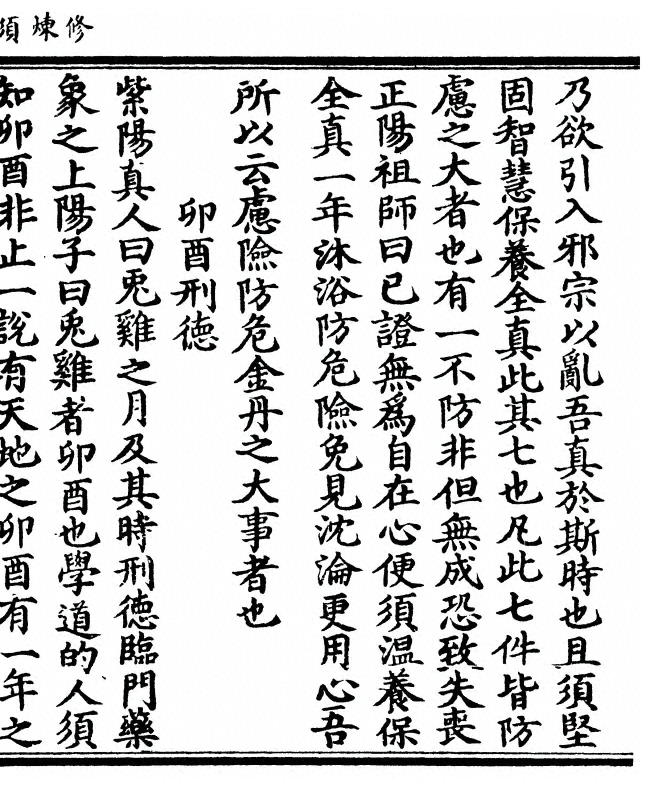 修煉須
乃欲引入邪宗以亂吾真於斯時也且須堅
固智慧保養全真此其七也凡此七件皆防
慮之大者也有一不防非但無成恐致失喪
正陽祖師曰已證無為自在心便須温養保
全真一年沐浴防危險免見沈淪更用心吾
所以云慮險防危金丹之大事者也
卯酉刑德
紫陽真人曰兎雞之月及其時刑德臨門藥
象之上陽子曰兎雞者卯酉也學道的人須
知卯酉非止一說有天地之卯酉有一年之